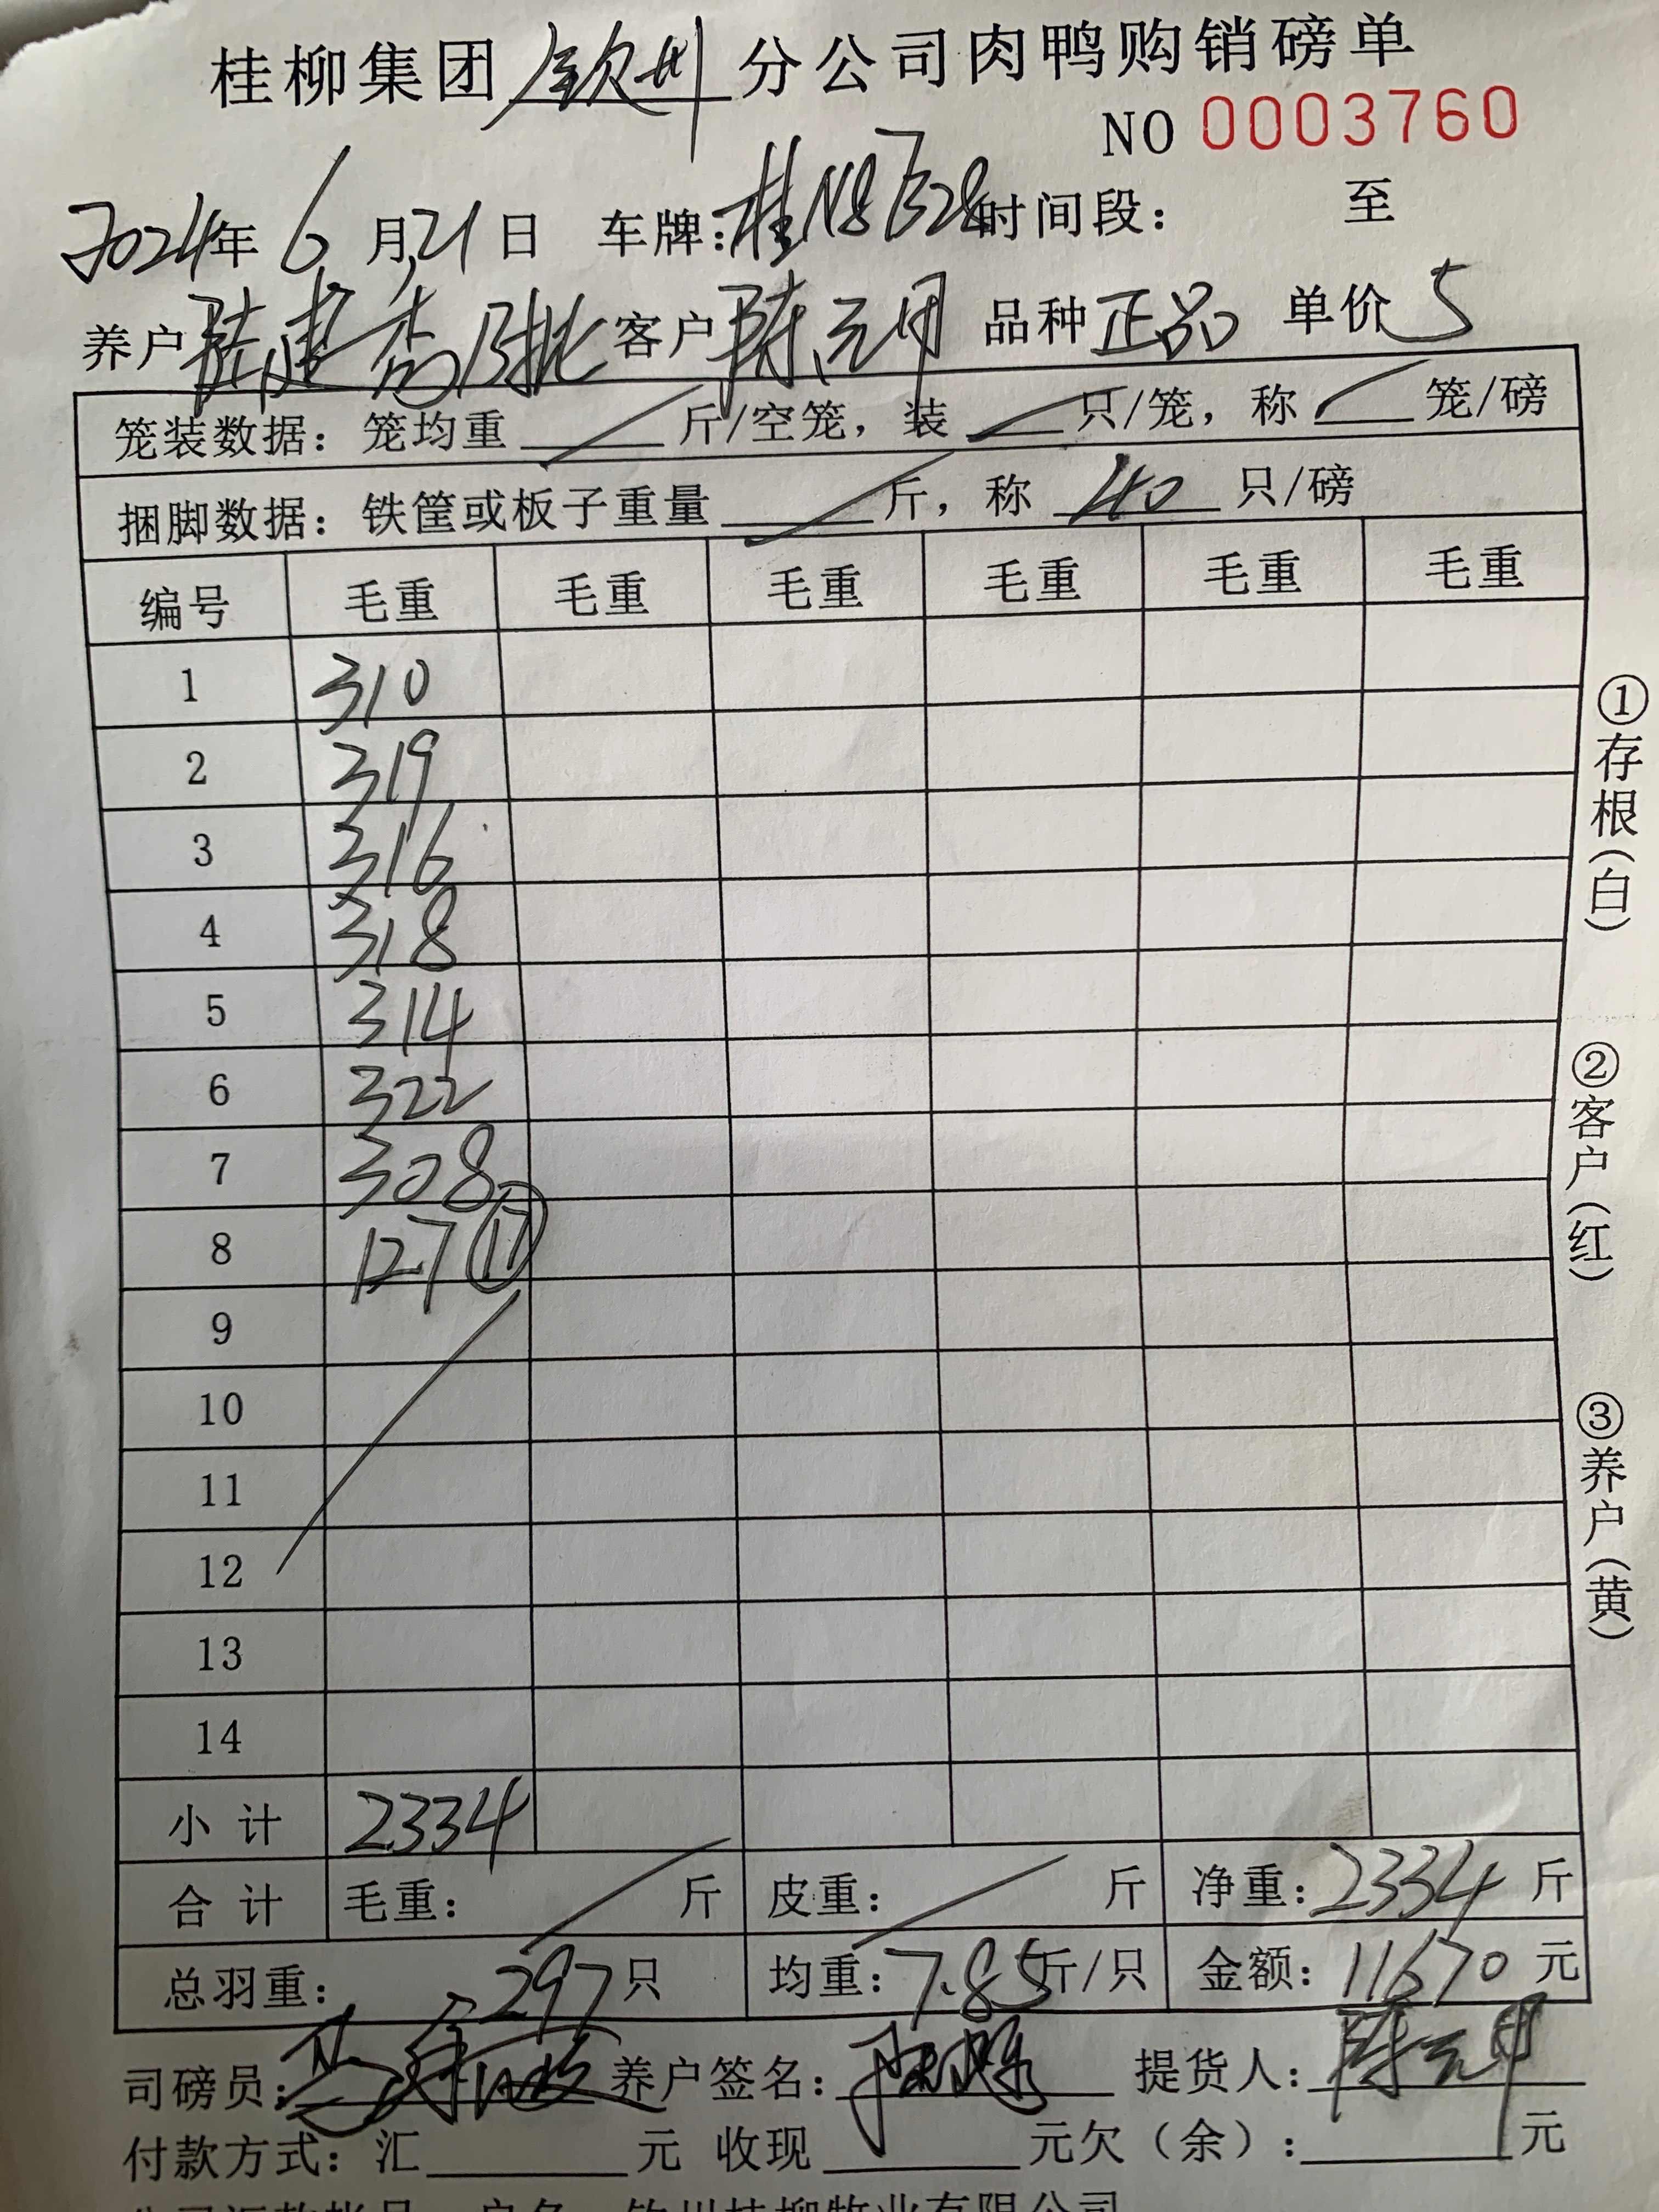 桂柳集团钦州分公司肉鸭购销磅单
NO 0003760
2024年6月21日 车牌:桂N8B28时间段: 至
养户陆建秀13批 客户陈元甲 品种正品 单价5
笼装数据: 笼均重 斤/空笼, 装 只/笼, 称 笼/磅
捆脚数据: 铁筐或板子重量 斤, 称 40 只/磅
编号 毛重 毛重 毛重 毛重 毛重 毛重
1 310
2 319
3 316
4 318
5 314
6 322
7 308
8 127 ⑰
9
10
11
12
13
14
小计 2334
合计 毛重: 斤 皮重: 斤 净重:2334斤
总羽重: 297只 均重:7.85斤/只 金额:11670元
司磅员: 养户签名: 提货人:陈元甲
付款方式: 汇 元 收现 元欠(余): 元
户名 钦州桂柳牧业有限公司
①存根(白)
②客户(红)
③养户(黄)